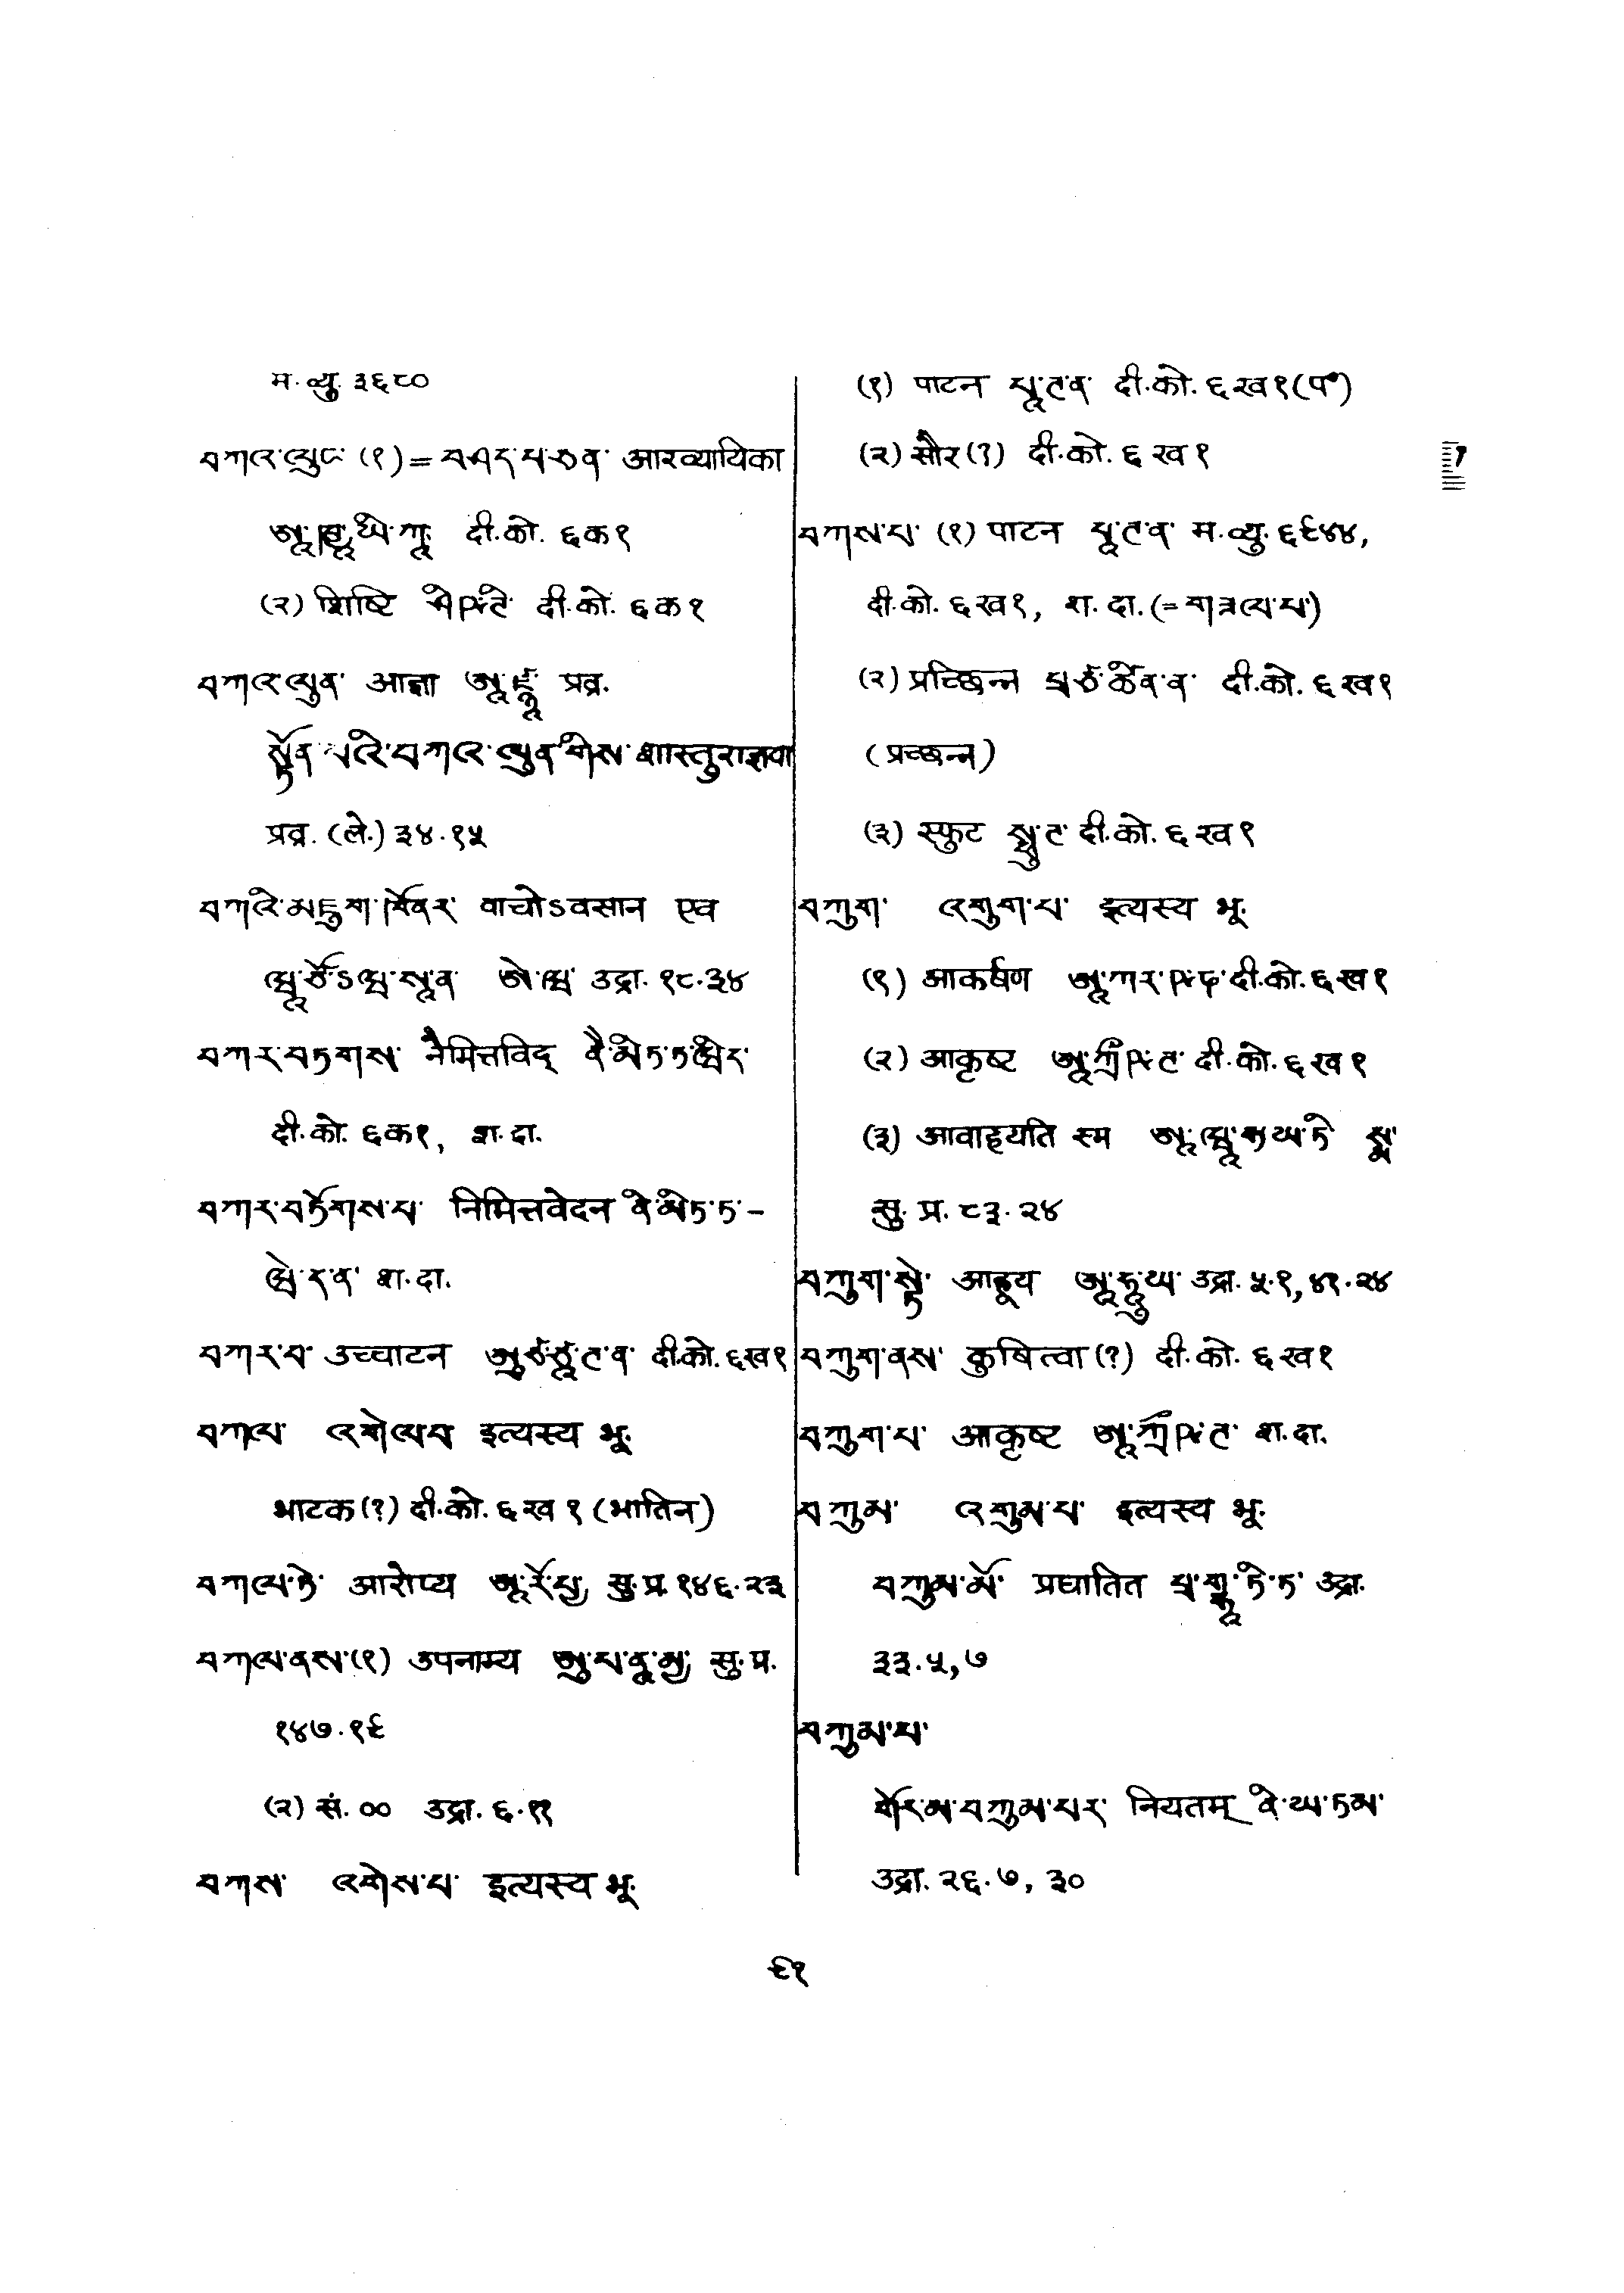 म.व्यु. ३६८०
བཀའ་ལུང་ (१) = བཤད་པ་ཅན་ आख्यायिका
ཨཱ་ཁྱཱ་ཡི་ཀཱ་ दी.को. ६क१
(२) शिष्टि ཤི་ཥྚི་ दी.को. ६क१
བཀའ་ལུན་ आज्ञा ཨཱ་ཛྙཱ་ प्रव्र.
སྟོན་པའི་བཀའ་ལུན་གིས་ शास्तुराज्ञया
प्रव्र. (ले.) ३४.१५
བཀའི་མཇུག་ཁོ་ནར་ वाचोऽवसान एव
ཝཱ་ཙོ྅་ཝ་སཱ་ན་ ཨེ་ཝ་ उद्रा. १८.३४
བཀར་བཏགས་ नैमित्तविद् ནཻ་མི་ཏ་ཏ་ཝིད་
दी.को. ६क१, श.दा.
བཀར་བཏོགས་པ་ निमित्तवेदन ནི་མི་ཏ་ཏ་-
ཝེ་ད་ན་ श.दा.
བཀར་བ་ उच्चाटन ཨུ་ཙ་ཙཱ་ཊ་ན་ दी.को. ६ख१
བཀལ་ འགེལ་བ་ इत्यस्य भू.
भाटक (?) दी.को. ६ख१ (भातिन)
བཀལ་ཏེ་ आरोप्य ཨཱ་རོ་པྱ་ सु.प्र. १४६.२३
བཀལ་ནས་ (१) उपनाम्य ཨུ་པ་ནཱ་མྱ་ सु.प्र.
१४७.१९
(२) सं. ०० उद्रा. ६.११
བཀས་ འགེས་པ་ इत्यस्य भू.
(१) पाटन པཱ་ཊ་ན་ दी.को. ६ख१ (प०)
(२) सौर (?) दी.को. ६ख१
བཀས་པ་ (१) पाटन པཱ་ཊ་ན་ म.व्यु. ६९४४,
दी.को. ६ख१, श.दा. (= གཤལ་པ་)
(२) प्रच्छिन्न པྲ་ཙ་ཚི་ན་ན་ दी.को. ६ख१
(प्रच्छन्न)
(३) स्फुट སྥུ་ཊ་ दी.को. ६ख१
བཀུག་ འགུག་པ་ इत्यस्य भू.
(१) आकर्षण ཨཱ་ཀར་ཥ་ཎ་ दी.को. ६ख१
(२) आकृष्ट ཨཱ་ཀྲྀ་ཥྚ་ दी.को. ६ख१
(३) आवाहयति स्म ཨཱ་ཝཱ་ཧ་ཡ་ཏི་ སྨ་
सु.प्र. ८३.२४
བཀུག་སྟེ་ आहूय ཨཱ་ཧཱུ་ཡ་ उद्रा. ५.१, ४१.२४
བཀུག་ནས་ कुषित्वा (?) दी.को. ६ख१
བཀུག་པ་ आकृष्ट ཨཱ་ཀྲྀ་ཥྚ་ श.दा.
བཀུམ་ འགུམ་པ་ इत्यस्य भू.
བཀུམ་མོ་ प्रघातित པྲ་གྷཱ་ཏི་ཏ་ उद्रा.
३३.५, ७
བཀུམ་པ་
གོར་མ་བཀུམ་པར་ नियतम् ནི་ཡ་ཏམ་
उद्रा. २६.७, ३०
९१